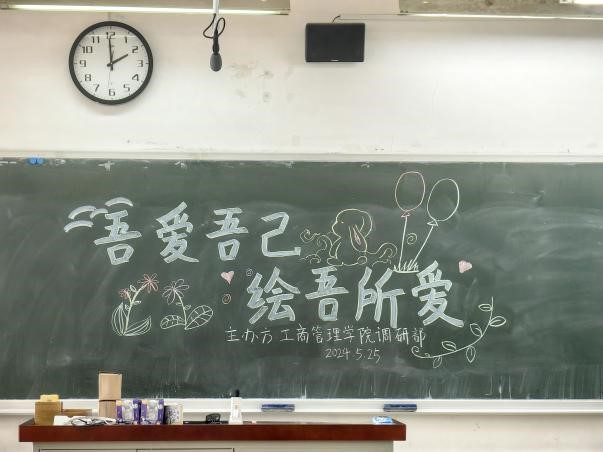 吾爱吾己
绘吾所爱
主办方 工商管理学院调研部
2024.5.25